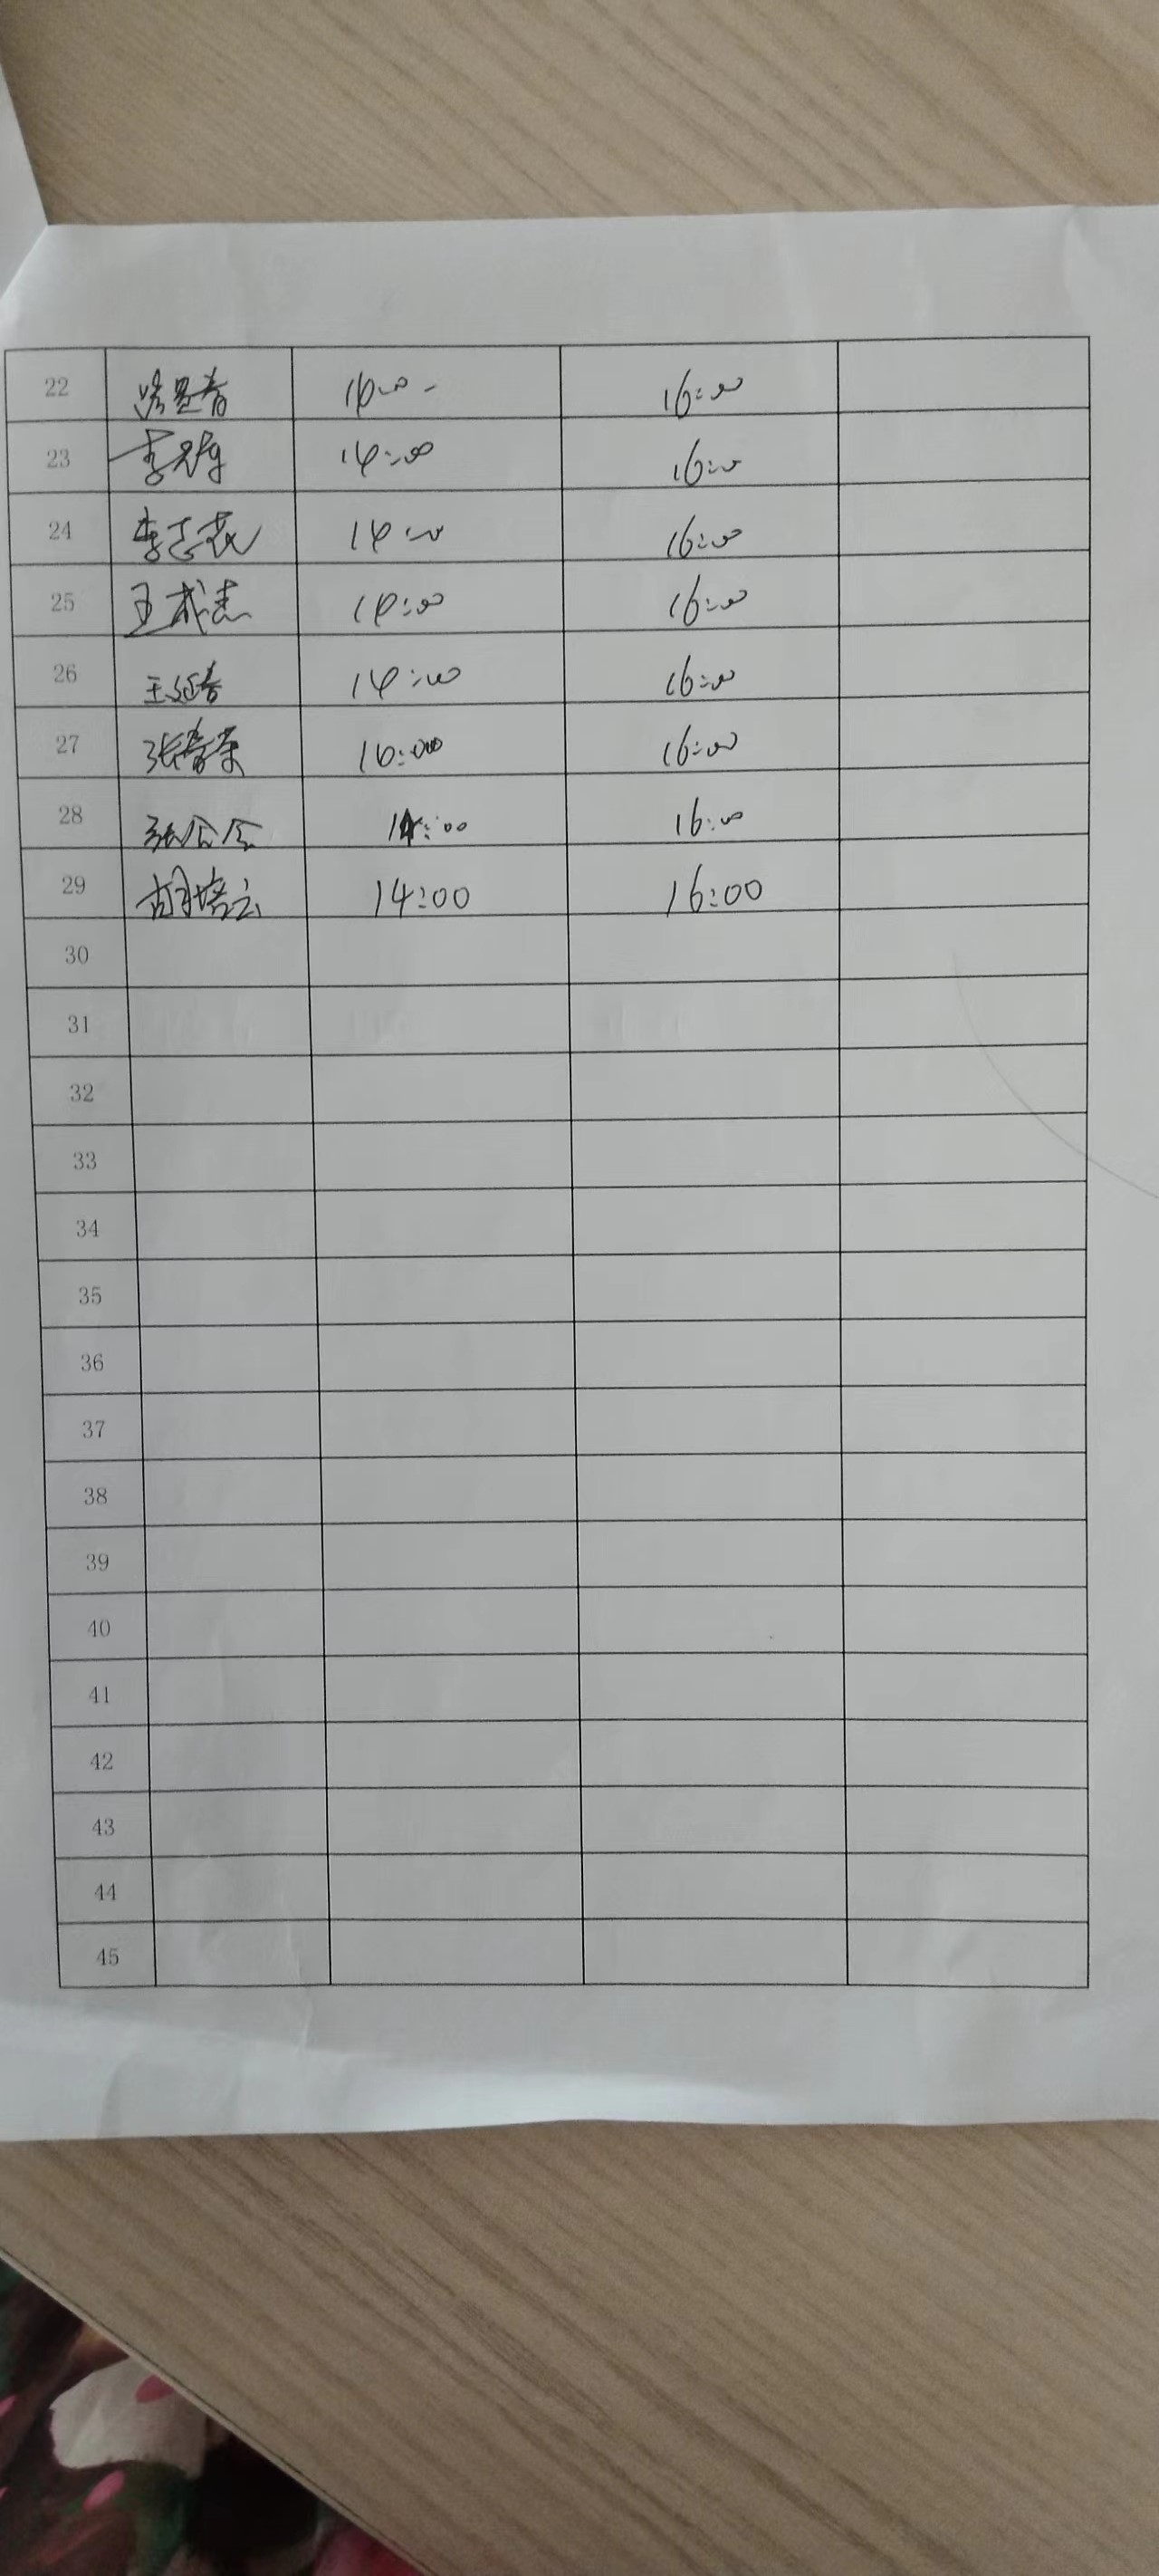 22 14:00 16:00
23 李 14:00 16:00
24 李志花 14:00 16:00
25 王成志 14:00 16:00
26 王延春 14:00 16:00
27 张春荣 16:00 16:00
28 张会会 14:00 16:00
29 胡培云 14:00 16:00
30
31
32
33
34
35
36
37
38
39
40
41
42
43
44
45